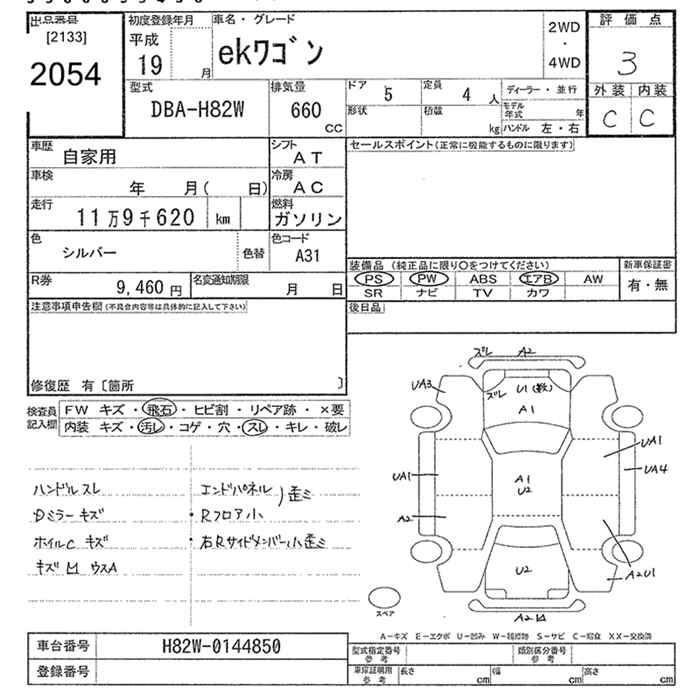 出品番号
[2133]
2054
初度登録年月
平成
19 月
車名・グレード
ekワゴン
2WD
・
4WD
評価点
3
外装 内装
C C
型式
DBA-H82W
排気量
660
CC
ドア
5
定員
4 人
ディーラー・並行
形状
積載
kg
モデル
年式 年
ハンドル 左・右
車歴
自家用
シフト
AT
車検
年 月( 日)
冷房
AC
走行
11万9千620 km
燃料
ガソリン
色
シルバー
色替
色コード
A31
R券
9,460 円
名変通知期限
月 日
セールスポイント(正常に機能するものに限ります)
装備品 (純正品に限り○をつけてください)
PS PW ABS エアB AW
SR ナビ TV カワ
新車保証書
有・無
後日品
注意事項申告欄(不具合内容等は具体的に記入して下さい)
修復歴 有〔箇所 〕
検査員
記入欄
FW キズ・飛石・ヒビ割・リペア跡・×要
内装 キズ・汚レ・コゲ・穴・スレ・キレ・破レ
ハンドルスレ
Dミラーキズ
ホイルC キズ
キズ凹ウスA
エンドパネル
・Rフロア小
)歪ミ
・右Rサイドメンバー小歪ミ
ズレ A2
UA3
ズレ
U1(数)
A1
UA1
UA1
UA4
A1
U2
A2
U2
A2U1
スペア
A2凹
A−キズ E−エクボ U−凹み W−補修跡 S−サビ C−腐食 XX−交換済
車台番号
H82W-0144850
登録番号
型式指定番号
参考
類別区分番号
参考
車庫証明用
参考
長さ
cm
幅
cm
高さ
cm